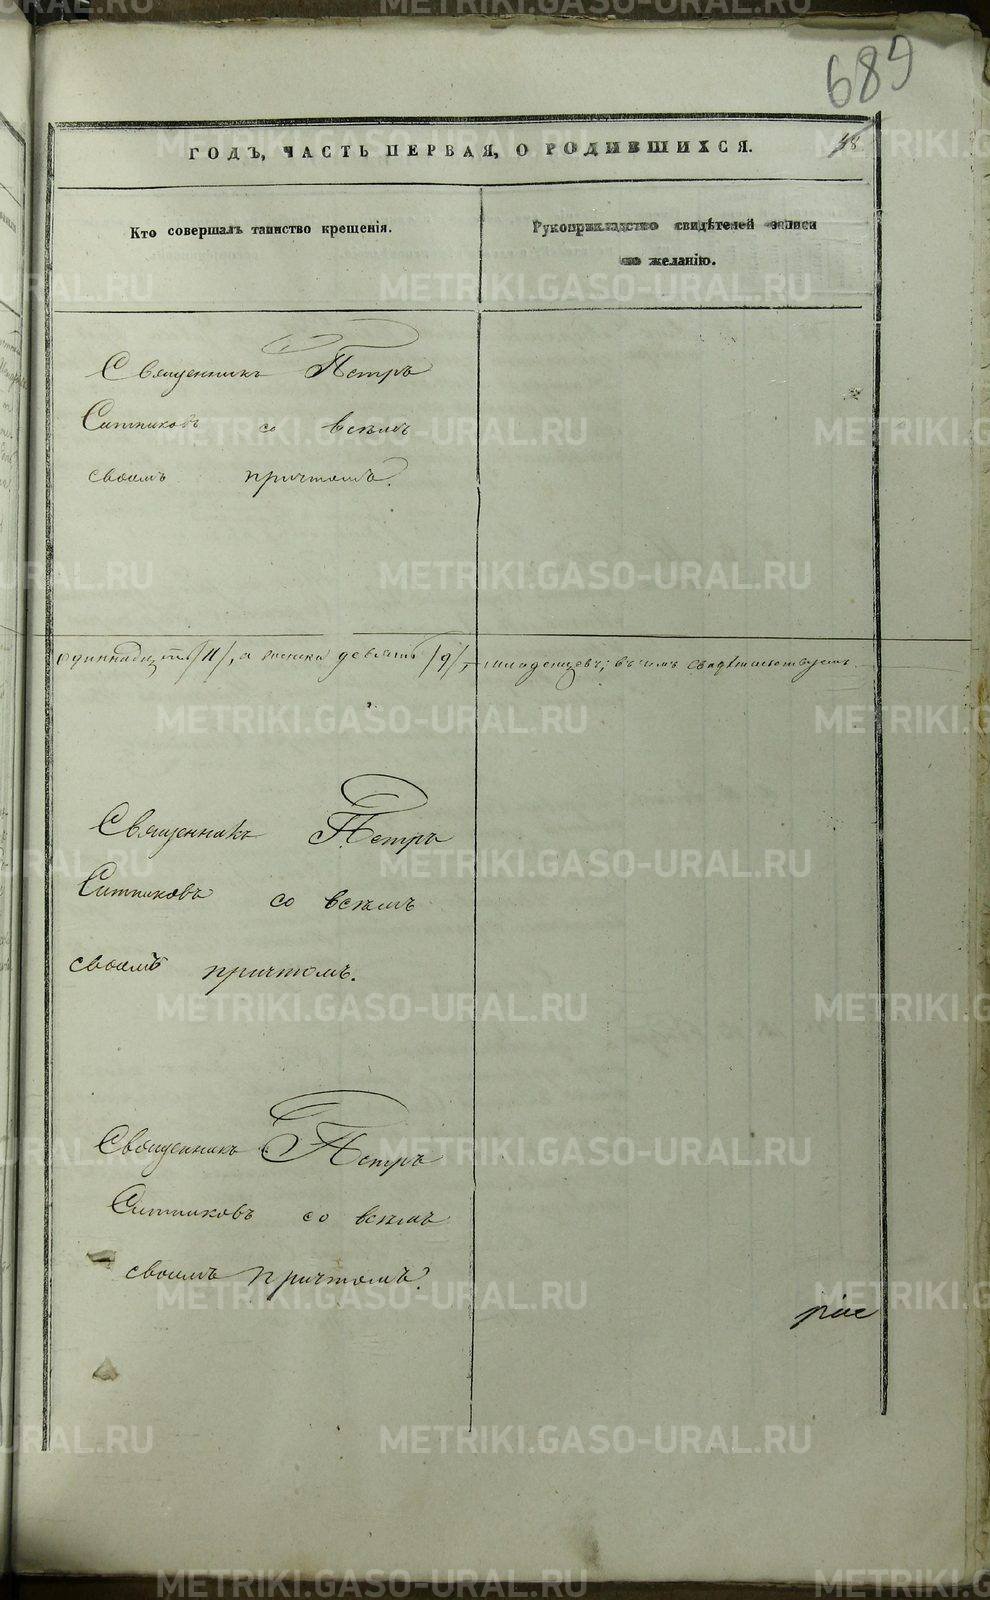 689
ГОДЪ, ЧАСТЬ ПЕРВАЯ, О РОДИВШИХСЯ.
Кто совершалъ таинство крещенія.
Рукоприкладство свидѣтелей записи
по желанію.
Священникъ Петръ
Ситниковъ со всѣмъ
своимъ причтомъ.
одиннадцать /11/, а женска девять /9/, младенцевъ; въ чемъ свидѣтельствуемъ
Священникъ Петръ
Ситниковъ со всѣмъ
своимъ причтомъ.
Священникъ Петръ
Ситниковъ со всѣмъ
своимъ причтомъ.
METRIKI.GASO-URAL.RU